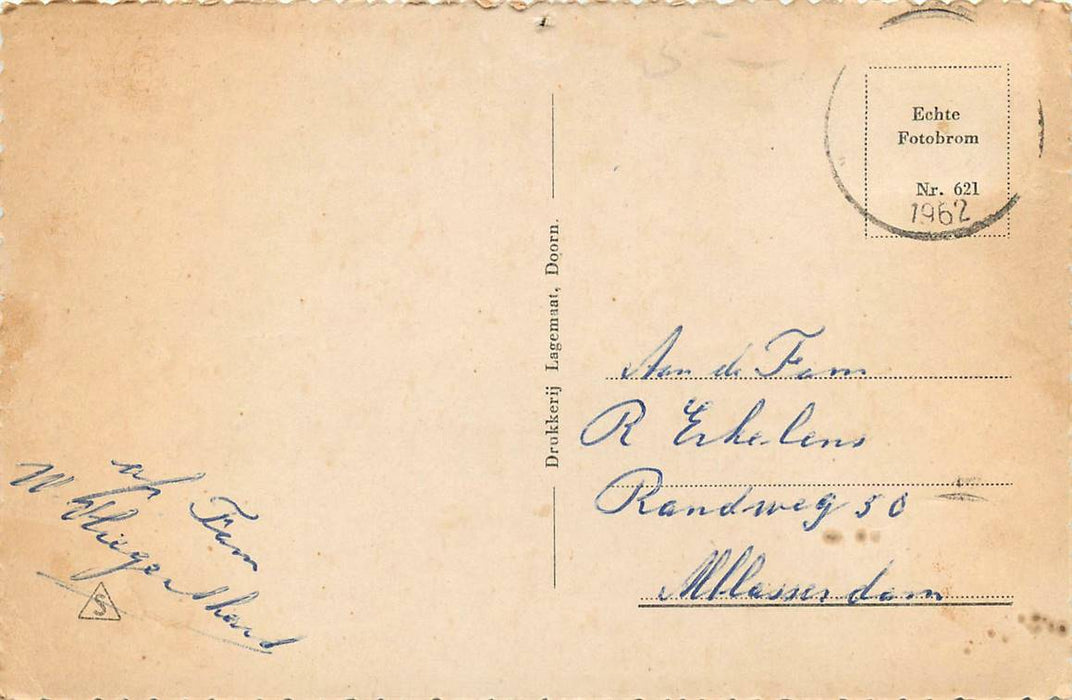 Echte
Fotobrom
Nr. 621
1962
Drukkerij Lagemaat, Doorn.
Aan de Fam
R Erkelens
Randweg 50
Alblasserdam
af Fam
W
S